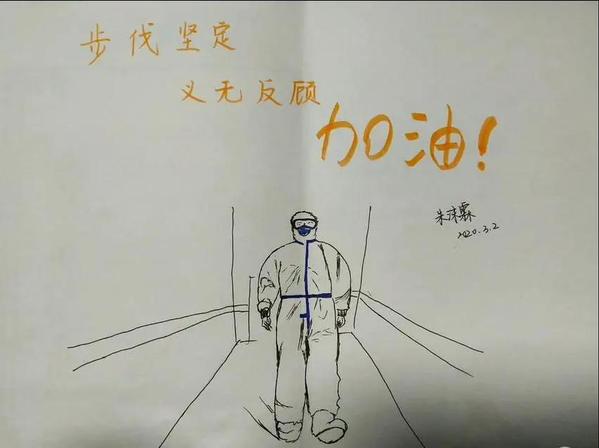 步伐坚定
义无反顾
加油!
朱沫霖
2020.3.2